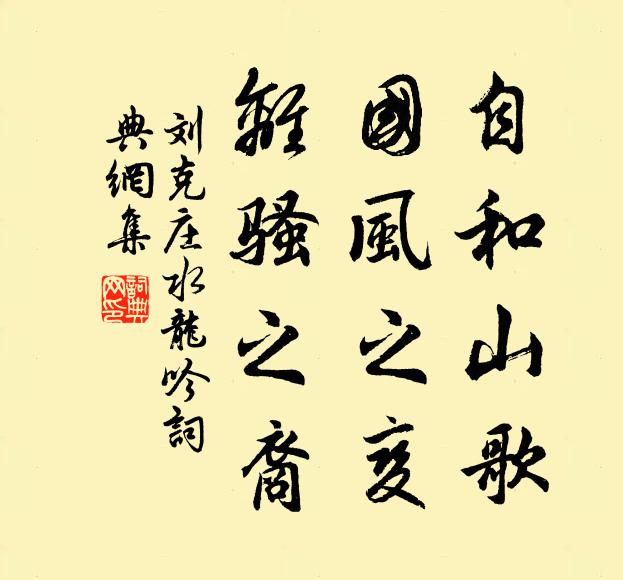 自和山歌
國風之变
離騷之裔
刘克庄水龍吟詞
典網集
詞典
网印